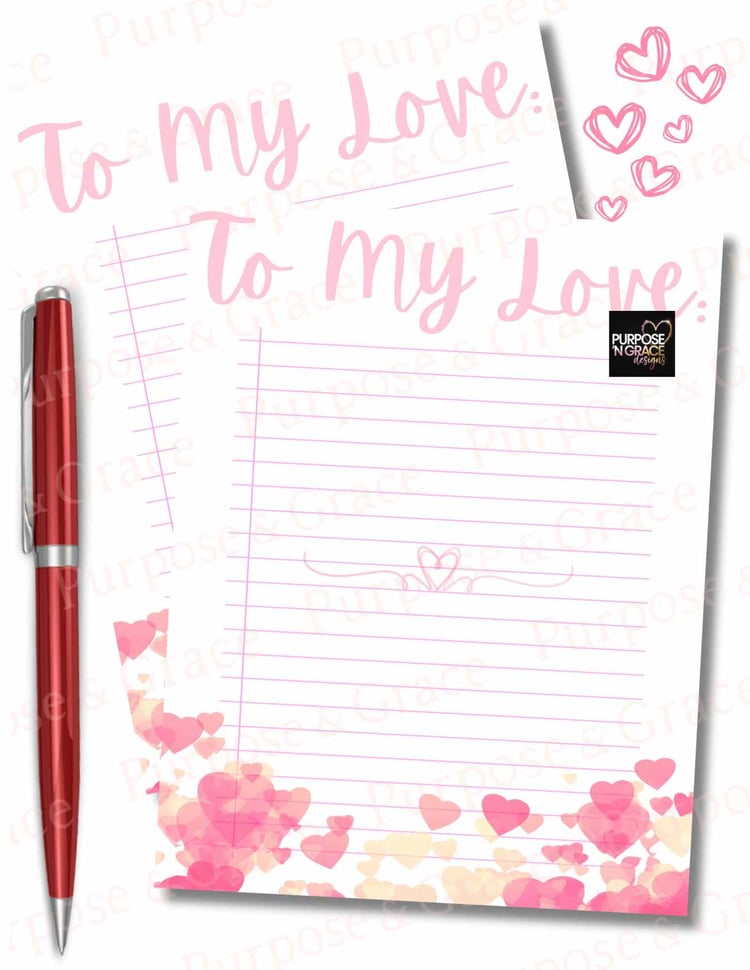 To My Love:
To My Love:
PURPOSE
'N GRACE
designs
Purpose & Grace